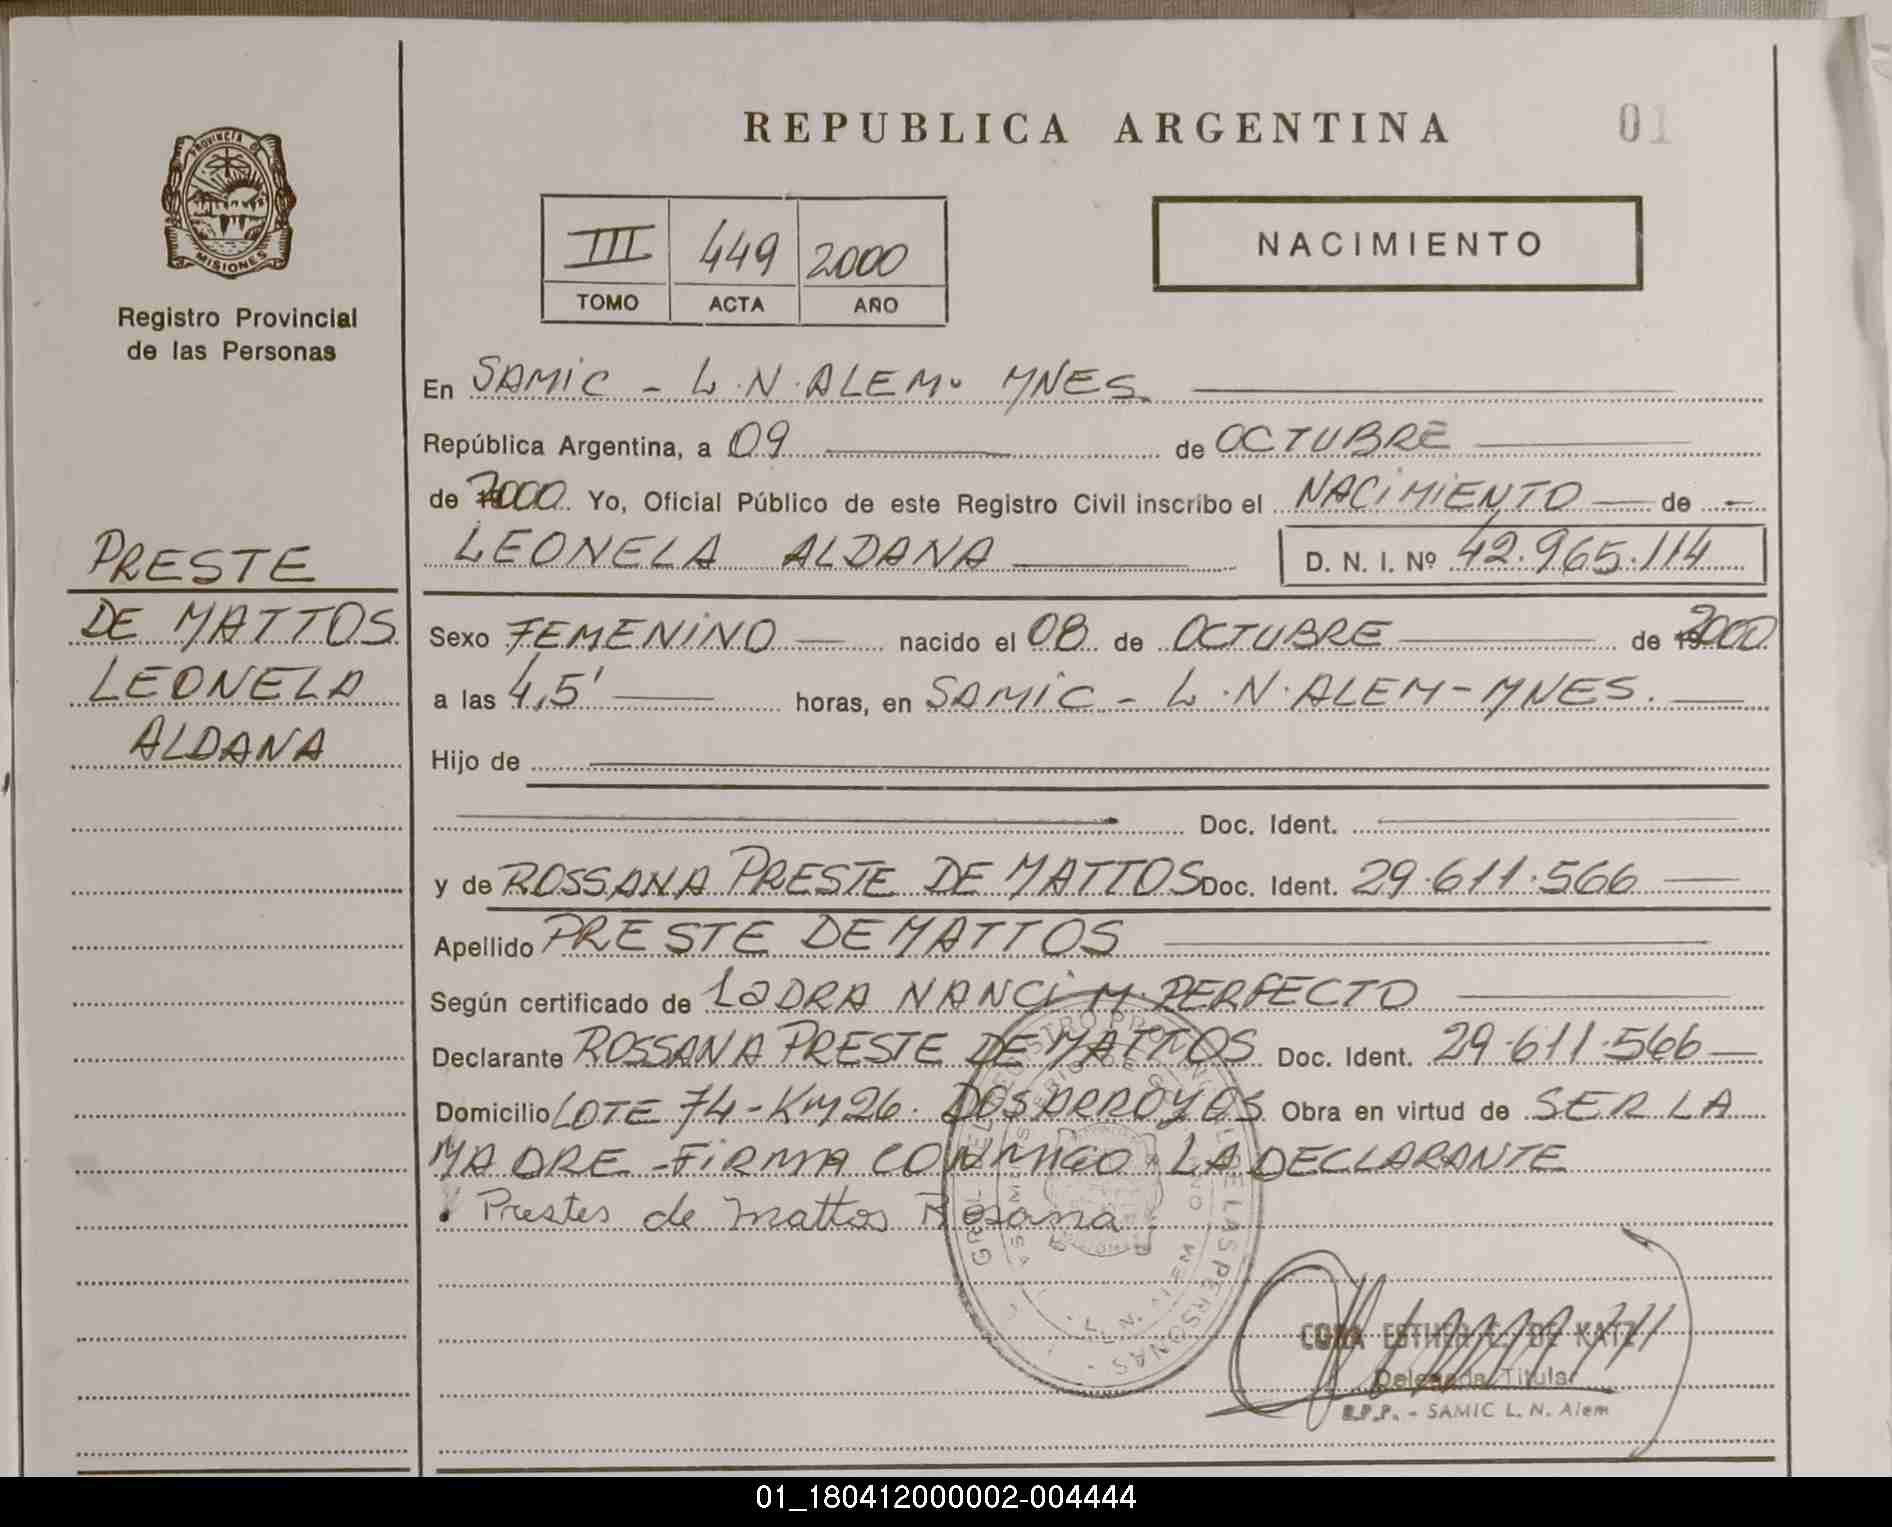 REPUBLICA ARGENTINA
01
PROVINCIA DE
MISIONES
Registro Provincial
de las Personas
III 449 2000
TOMO ACTA AÑO
NACIMIENTO
En SAMIC - L.N. ALEM. MNES.
República Argentina, a 09 de OCTUBRE
de 2000 Yo, Oficial Público de este Registro Civil inscribo el NACIMIENTO de
LEONELA ALDANA D. N. I. Nº 42.965.114
PRESTE
DE MATTOS
LEONELA
ALDANA
Sexo FEMENINO nacido el 08 de OCTUBRE de 2000
a las 4,5' horas, en SAMIC - L.N. ALEM - MNES.
Hijo de
Doc. Ident.
y de ROSSANA PRESTE DE MATTOS Doc. Ident. 29.611.566
Apellido PRESTE DE MATTOS
Según certificado de LaDRA NANCI M. PERFECTO
Declarante ROSSANA PRESTE DE MATTOS Doc. Ident. 29.611.566
Domicilio LOTE 74 - KM 26. DOS ARROYOS Obra en virtud de SER LA
MADRE - FIRMA CONMIGO LA DECLARANTE
Prestes de Mattos Rosana
CORA ESTHER C. DE KATZ
Delegada Titular
R.P.P. - SAMIC L. N. Alem
01_180412000002-004444